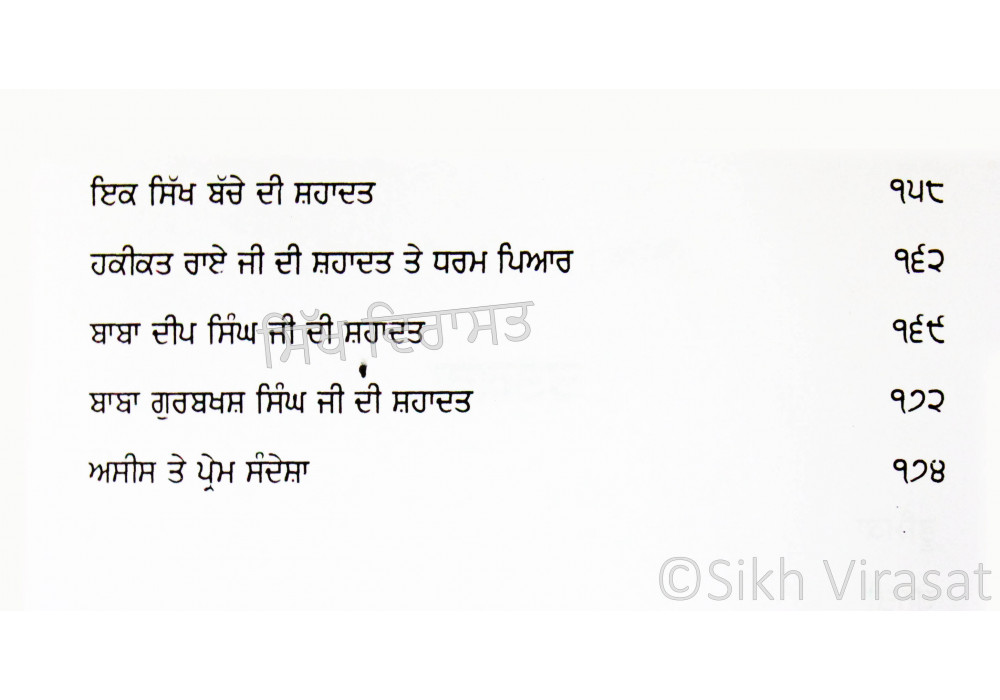 ਇਕ ਸਿੱਖ ਬੱਚੇ ਦੀ ਸ਼ਹਾਦਤ ੧੫੮
ਹਕੀਕਤ ਰਾਏ ਜੀ ਦੀ ਸ਼ਹਾਦਤ ਤੇ ਧਰਮ ਪਿਆਰ ੧੬੨
ਬਾਬਾ ਦੀਪ ਸਿੰਘ ਜੀ ਦੀ ਸ਼ਹਾਦਤ ੧੬੯
ਸਿੱਖ ਵਿਰਾਸਤ
ਬਾਬਾ ਗੁਰਬਖਸ਼ ਸਿੰਘ ਜੀ ਦੀ ਸ਼ਹਾਦਤ ੧੭੨
ਅਸੀਸ ਤੇ ਪ੍ਰੇਮ ਸੰਦੇਸ਼ਾ ੧੭੪
©Sikh Virasat